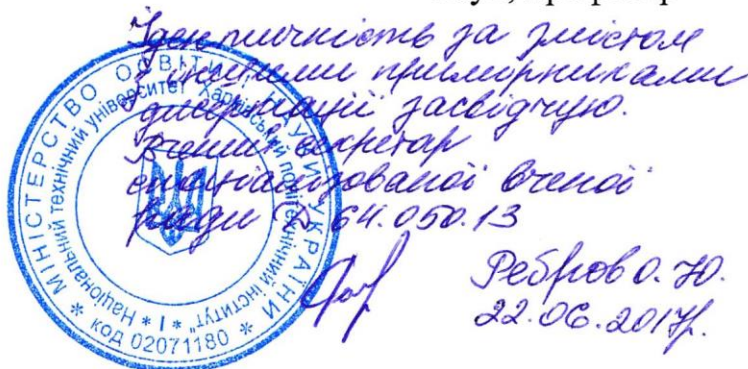 Ідентичність за змістом
з іншими примірниками
дисертації засвідчую.
Вчений секретар
спеціалізованої вченої
ради Д 64.050.13
Ребров О. Ю.
22.06.2017р.
МІНІСТЕРСТВО ОСВІТИ І НАУКИ УКРАЇНИ
* КОД 02071180 *
Національний технічний університет "Харківський політехнічний інститут" * 1 *